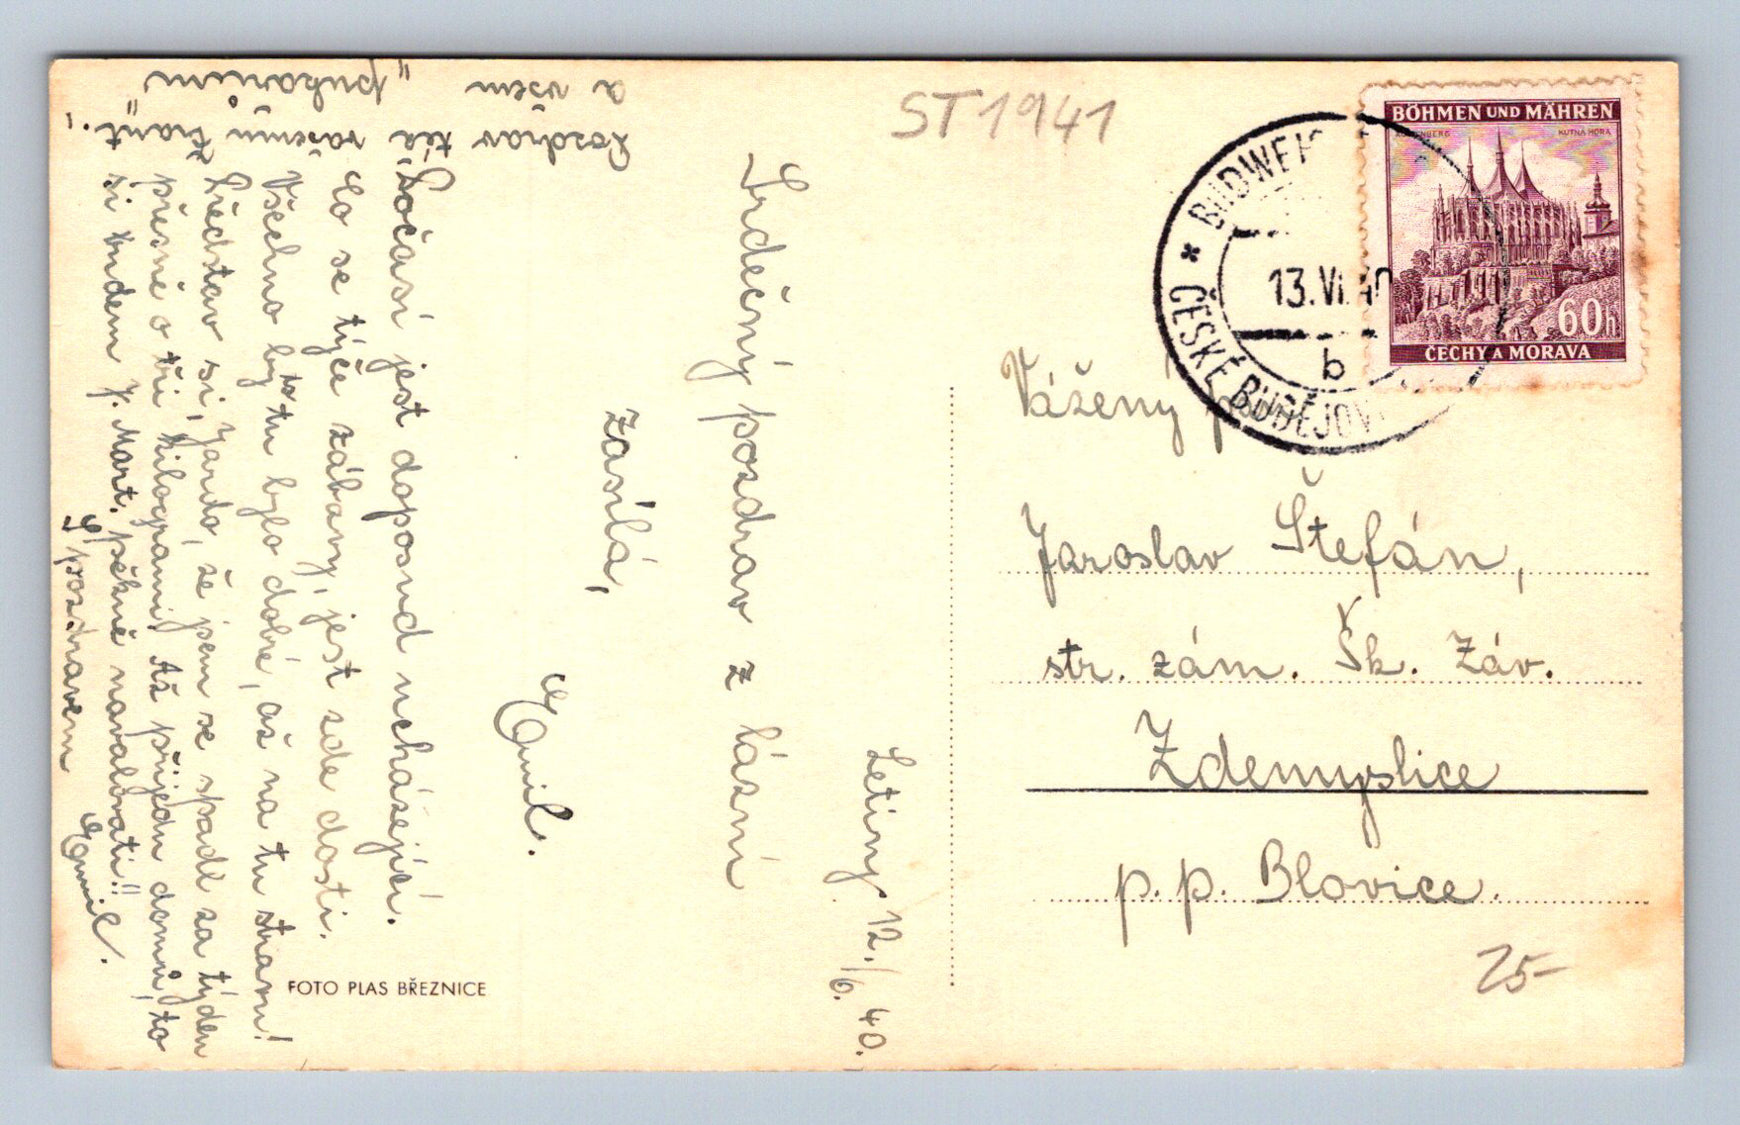 Letiny 12./6. 40.
Srdečný pozdrav z lázní
zasílá,
Emil.
Počasí jest doposud ucházející.
Co se týče zábavy, jest zde dosti.
Všechno by tu bylo dobré, až na tu stravu!
Představ si, Jardo, že jsem se spadl za týden
přesně o tři kilogramy. Až přijedu domů, to
si budem J. Mart. pěkně navalovati!!
S pozdravem
Emil.
Pozdrav též vašemu
a všem „
FOTO PLAS BŘEZNICE
ST 1941
BUDWEI
ČESKÉ BUDĚJOV
13.VI.40
b
BÖHMEN UND MÄHREN
KUTNÁ HORA
60h
ČECHY A MORAVA
Vážený
Jaroslav Štefán,
str. zám. Šk. Záv.
Zdemyslice
p. p. Blovice.
25-